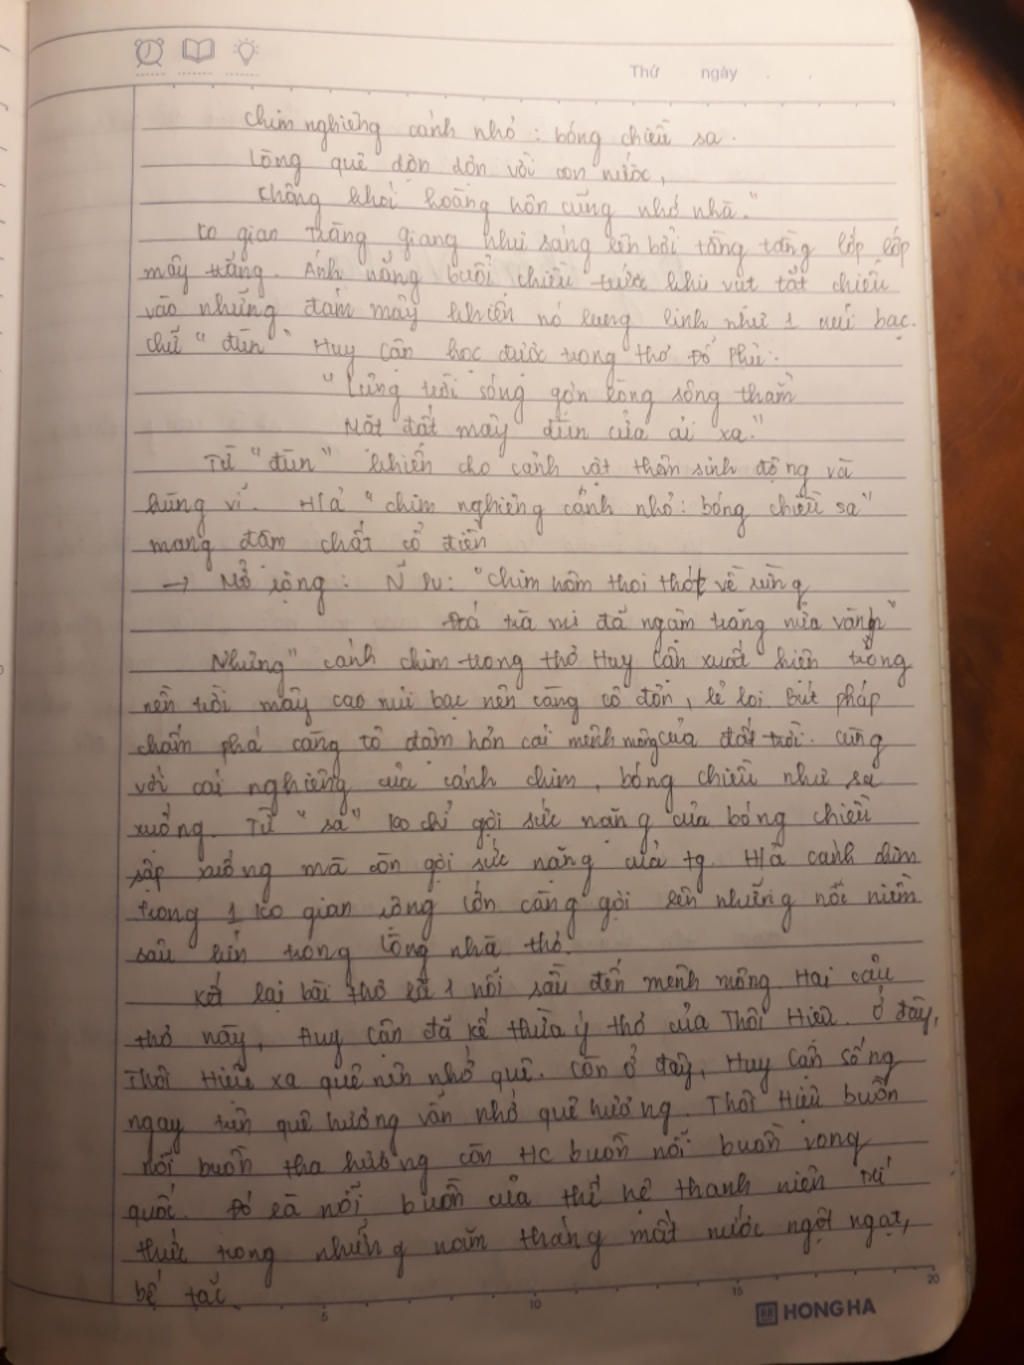 Thứ ngày
Chim nghiêng cánh nhỏ : bóng chiều sa.
Lòng quê dợn dợn vời con nước,
Không khói hoàng hôn cũng nhớ nhà."
ko gian Tràng giang như sáng lên bởi tầng tầng lớp lớp
mây trắng. Ánh nắng buổi chiều trước khi vụt tắt chiếu
vào những đám mây khiến nó lung linh như 1 núi bạc.
chữ "đùn" Huy Cận học được trong thơ Đỗ Phủ:
"Lưng trời sóng gợn lòng sông thẳm
Mặt đất mây đùn cửa ải xa."
Từ "đùn" khiến cho cảnh vật thêm sinh động và
hùng vĩ. H/ả "chim nghiêng cánh nhỏ: bóng chiều sa"
mang đậm chất cổ điển
→ Mở rộng : "Chim hôm thoi thót về rừng
Đoá trà mi đã ngậm trăng nửa vành"
Nhưng" cánh chim trong thơ Huy Cận xuất hiện trong
nền trời mây cao núi bạc nên càng cô đơn, lẻ loi bút pháp
chấm phá càng tô đậm hơn cái mênh mông của đất trời. Cùng
với cái nghiêng của cánh chim, bóng chiều như sa
xuống. Từ "sa" ko chỉ gợi sức nặng của bóng chiều
sập xuống mà còn gợi sức nặng của tg. H/ả cánh chim
trong 1 ko gian rộng lớn càng gợi lên những nỗi niềm
sâu kín trong lòng nhà thơ.
Kết lại bài thơ là 1 nỗi sầu đến mênh mông Hai câu
thơ này, Huy Cận đã kế thừa ý thơ của Thôi Hiệu. Ở đây,
Thôi Hiệu xa quê nên nhớ quê. Còn ở đây, Huy Cận sống
ngay trên quê hương vẫn nhớ quê hương. Thôi Hiệu buồn
nỗi buồn tha hương còn HC buồn nỗi buồn vong
quốc. Đó là nỗi buồn của thế hệ thanh niên trí
thức trong những năm tháng mất nước ngột ngạt,
bế tắc.
5 10 15 20
HONG HA